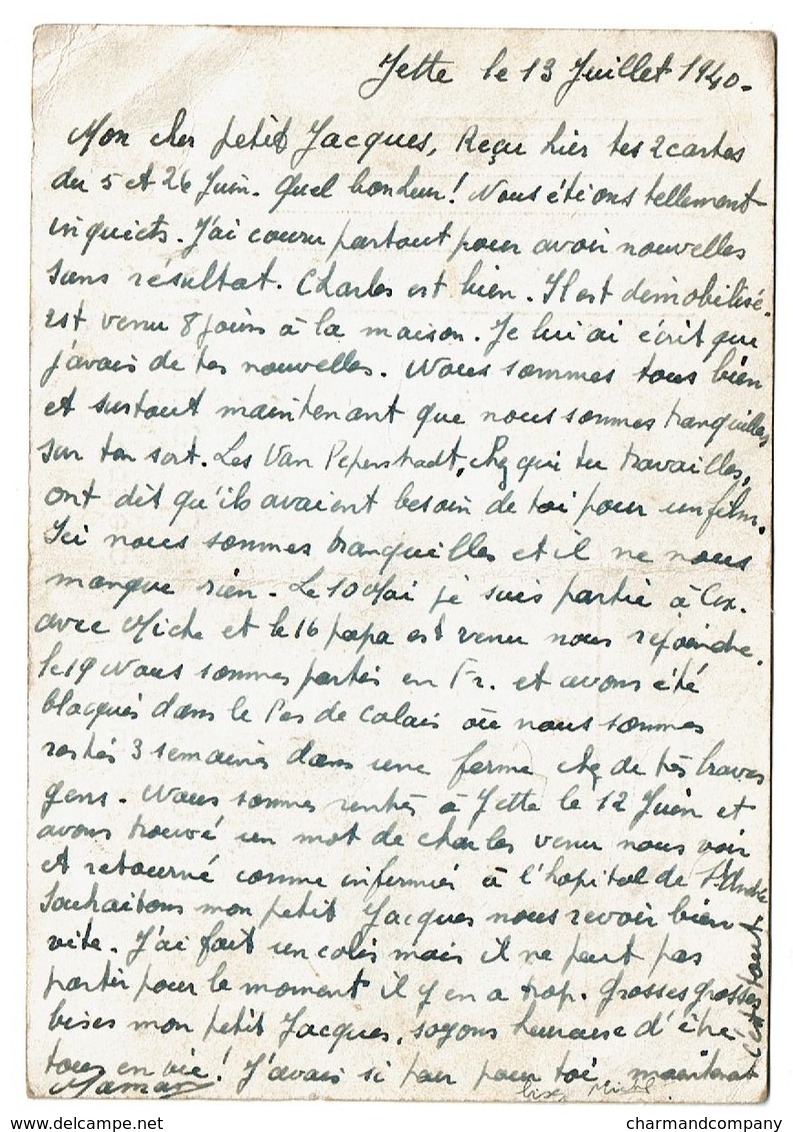 Jette le 13 Juillet 1940.
Mon cher petit Jacques, Reçu hier tes 2 cartes
du 5 et 26 Juin. Quel bonheur! Nous étions tellement
inquiets. J'ai couru partout pour avoir nouvelles
sans resultat. Charles est bien. Il est démobilisé.
est venu 8 jours à la maison. Je lui ai écrit que
j'avais de tes nouvelles. Nous sommes tous bien
et surtout maintenant que nous sommes tranquilles
sur ton sort. Les Van Peperstradt, chez qui tu travailles,
ont dit qu'ils avaient besoin de toi pour un film.
Ici nous sommes tranquilles et il ne nous
manque rien. Le 10 Mai je suis partie à
avec Miche et le 16 papa est venu nous rejoindre.
le 19 Nous sommes partis en Fr. et avons été
bloqués dans le Pas de Calais où nous sommes
restés 3 semaines dans une ferme chez de très braves
gens. Nous sommes rentrés à Jette le 12 Juin et
avons trouvé un mot de Charles venu nous voir
et retourné comme infirmier à l'hopital de St. André
Souhaitons mon petit Jacques nous revoir bien
vite. J'ai fait un colis mais il ne peut pas
partir pour le moment il y en a trop. Grosses grosses
bises mon petit Jacques, soyons heureuse d'être
tous en vie! J'avais si peur pour toi maintenant
c'est tout
Maman
bises Michel
charmandcompany